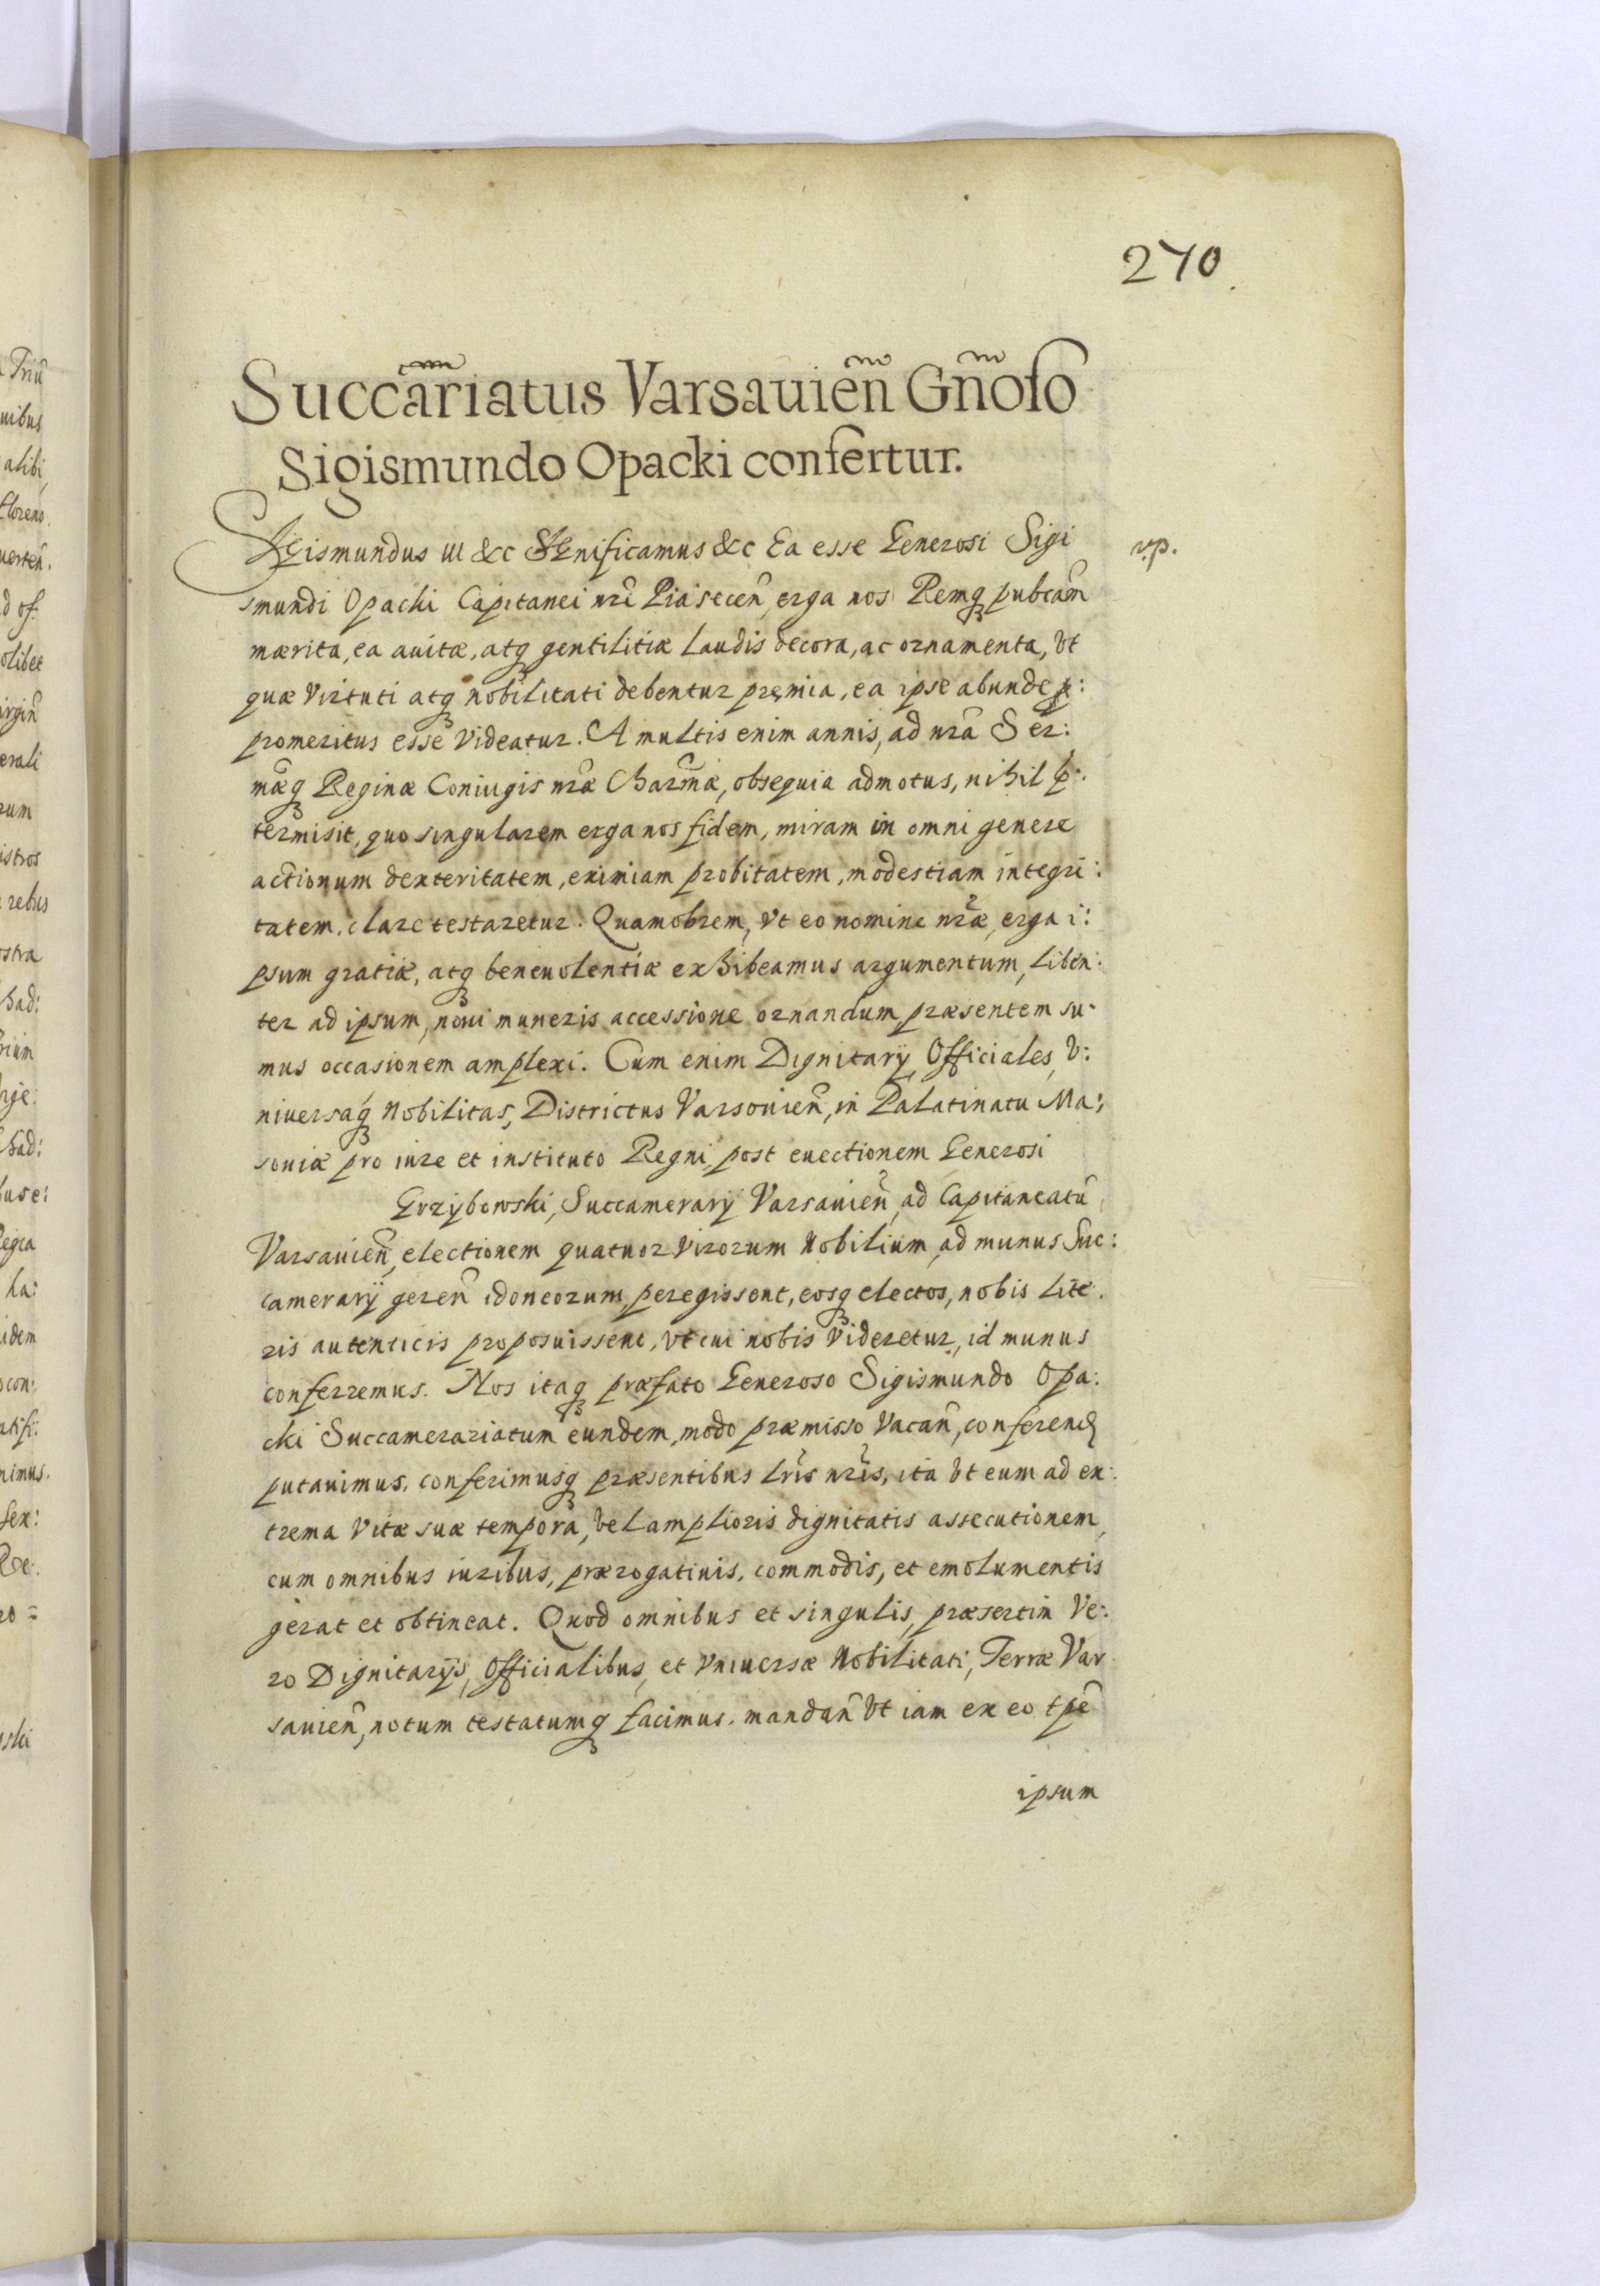 270
Succãriatus Varsauień Gñoso
Sigismundo Opacki confertur.
Sigismundus III &c Significamus &c Ea esse Generosi Sigi
v.p.
smundi Opacki Capitanei nrĩ Piaseceñ, erga nos Remq pubcãm
mærita, ea auitæ, atq gentilitiæ laudis decora, ac ornamenta, vt
quæ virtuti atq nobilitati debentur premia, ea ipse abunde
promeritus esse videatur. A multis enim annis, ad nrã Ser:
mæq Reginæ Coniugis nræ Charmæ, obsequia admotus, nihil p:
termisit, quo singularem erga nos fidem, miram in omni genere
actionum dexteritatem, eximiam probitatem, modestiam integri:
tatem, clare testaretur. Quamobrem, vt eo nomine nræ, erga i:
psum gratiæ, atq beneuolentiæ exhibeamus argumentum, liben:
ter ad ipsum, noui muneris accessione ornandum, præsentem su:
mus occasionem amplexi. Cum enim Dignitarij, Officiales, v:
niuersaq Nobilitas, Districtus Varsouień, in Palatinatu Ma:
souiæ pro iure et instituto Regni, post euectionem Generosi
Grzybowski, Succamerarij Varsauień, ad Capitaneatũ
Varsauień, electionem quatuor virorum Nobilium, ad munus Suc:
camerarij gereñ idoneorum, peregissent, eosq electos, nobis lite:
ris autenticis proposuissent, vt cui nobis videretur, id munus
conferremus. Nos itaq præfato Generoso Sigismundo Opa:
cki Succamerariatum eundem, modo præmisso vacañ, conferend
putauimus, conferimusq præsentibus lrĩs nrĩs, ita vt eum ad ex:
trema vitæ suæ tempora, vel amplioris dignitatis assecutionem,
cum omnibus iuribus, prærogatiuis, commodis, et emolumentis
gerat et obtineat. Quod omnibus et singulis, præsertim ve:
ro Dignitarijs, Officialibus, et vniuersæ Nobilitati, Terræ Var
sauień, notum testatumq facimus, mandañ vt iam ex eo tpẽ
ipsum